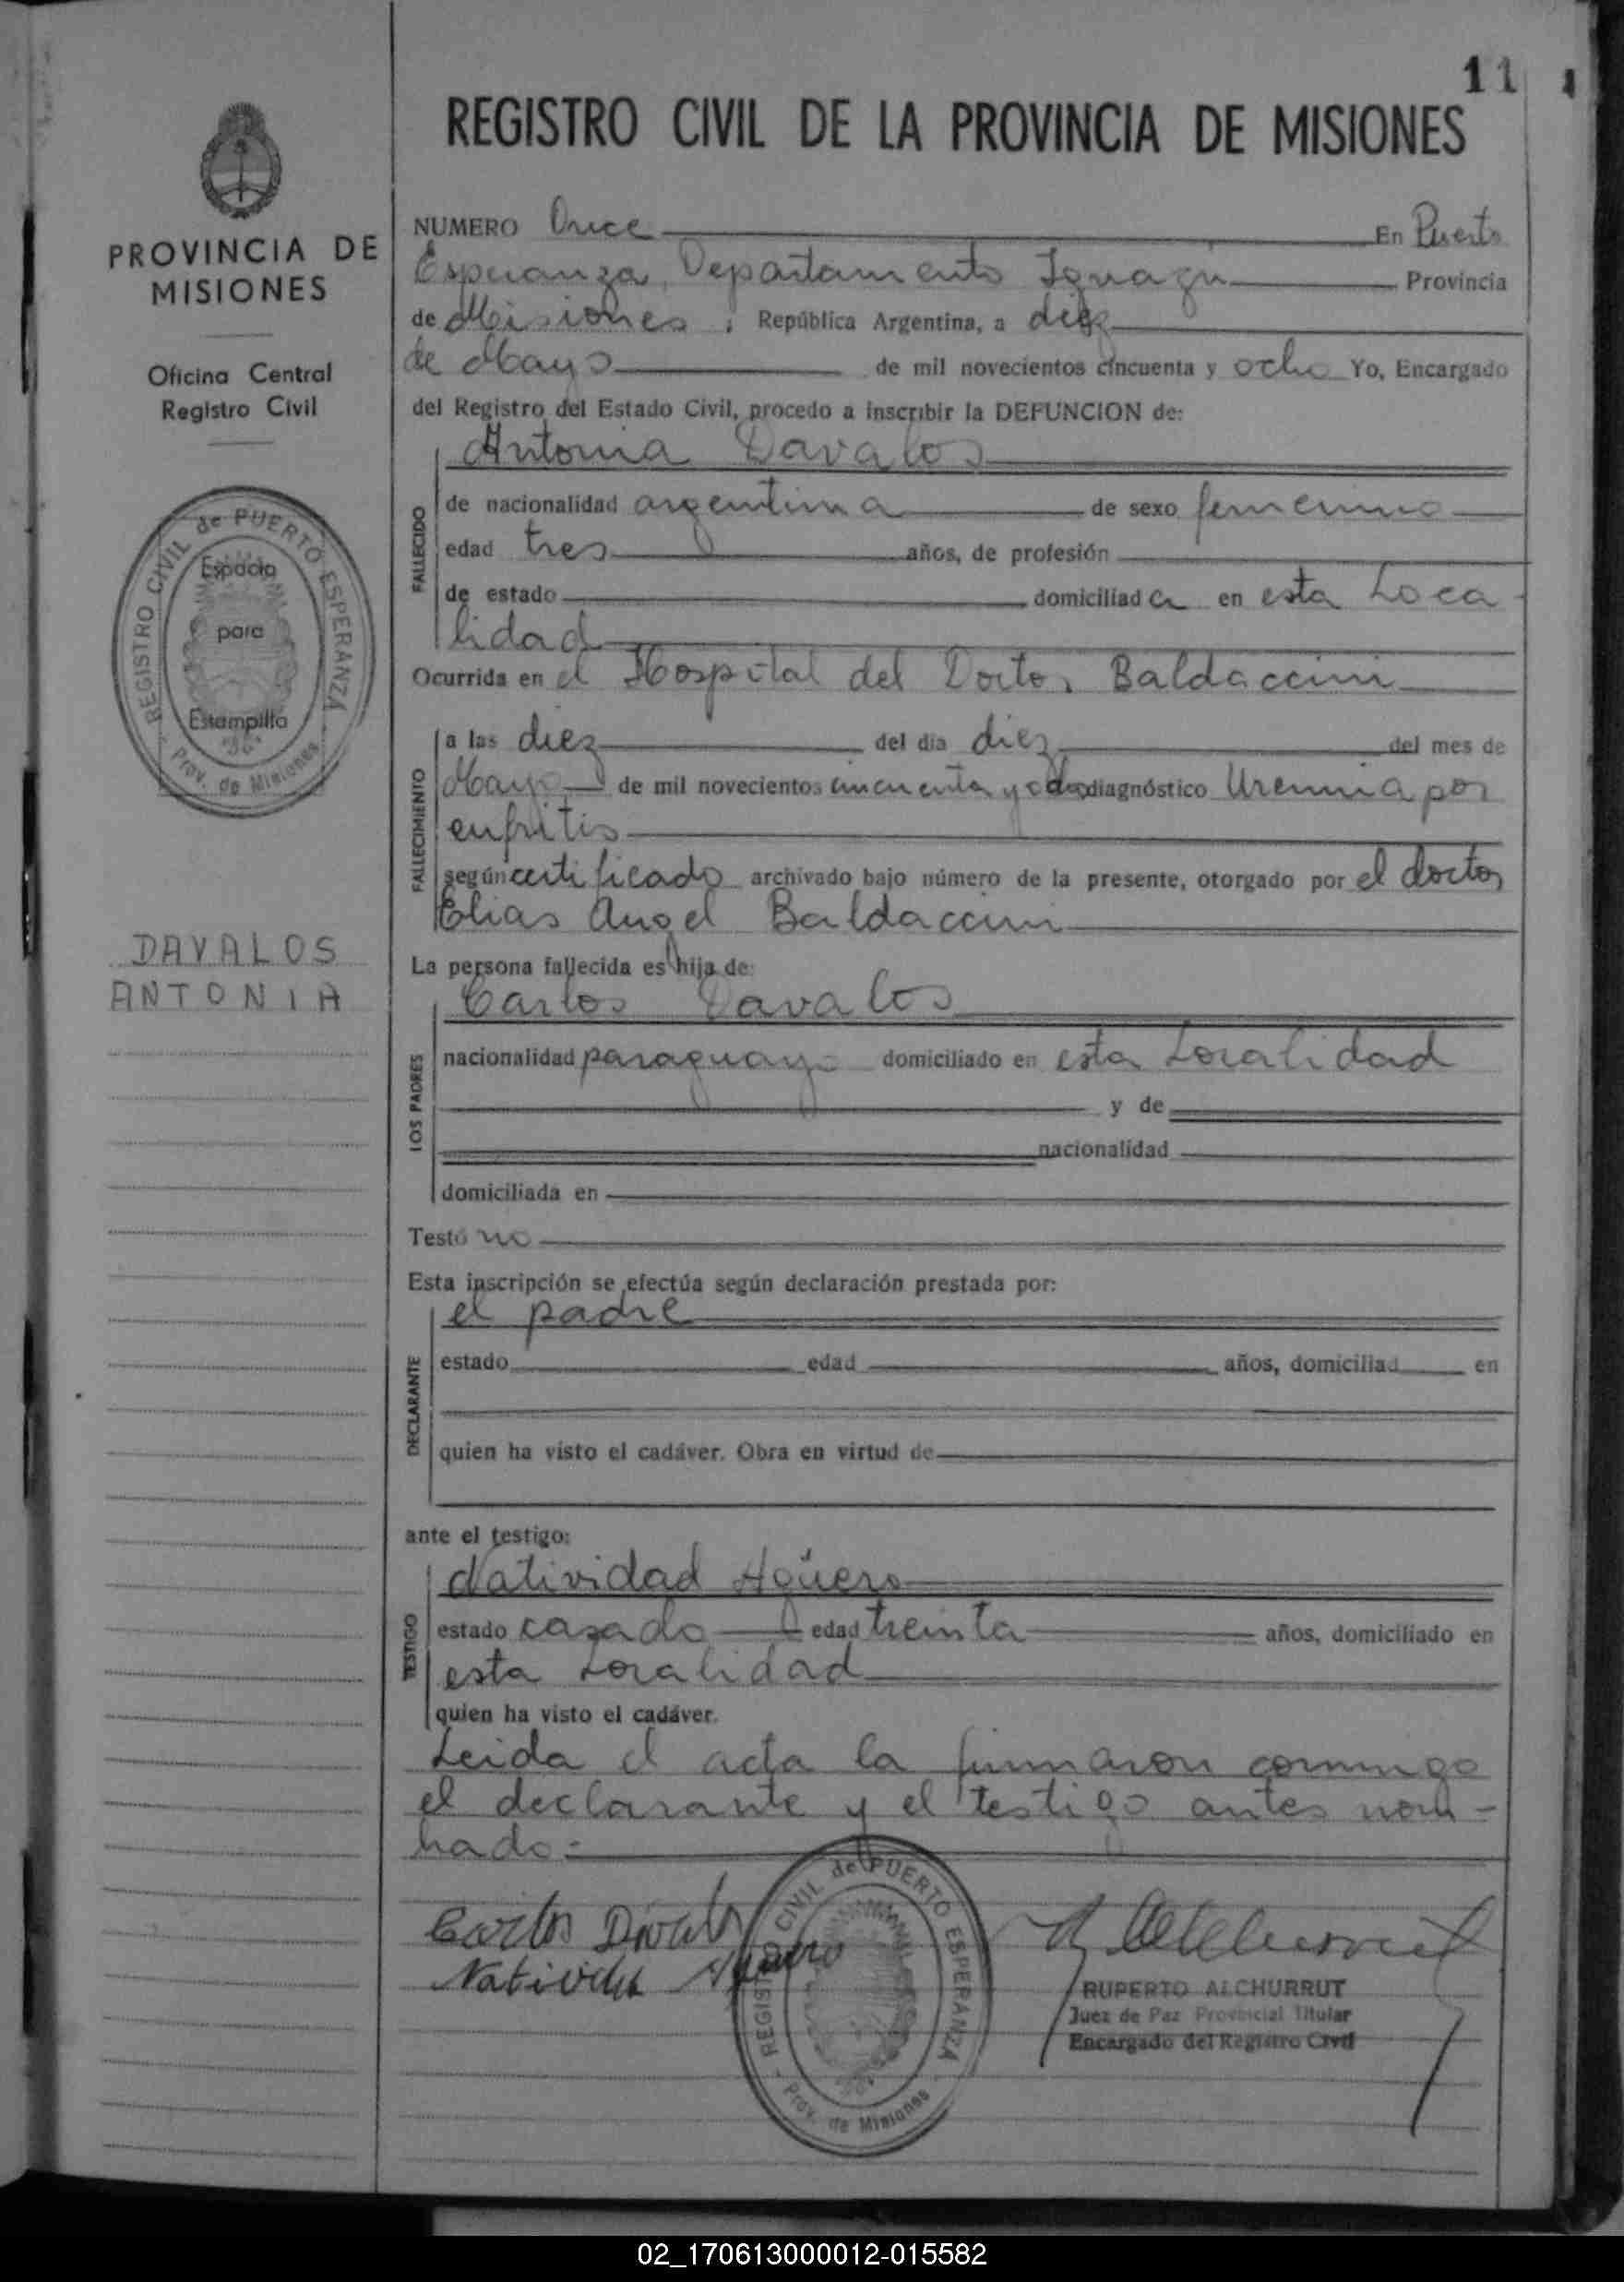 11
REGISTRO CIVIL DE LA PROVINCIA DE MISIONES
PROVINCIA DE
MISIONES
Oficina Central
Registro Civil
REGISTRO CIVIL de PUERTO ESPERANZA
Prov. de Misiones
Espacio
para
Estampilla
DAVALOS
ANTONIA
NUMERO Once En Puerto
Esperanza, Departamento Iguazú Provincia
de Misiones, República Argentina, a diez
de Mayo de mil novecientos cincuenta y ocho Yo, Encargado
del Registro del Estado Civil, procedo a inscribir la DEFUNCION de:
Antonia Davalos
FALLECIDO
de nacionalidad argentina de sexo femenino
edad tres años, de profesión
de estado domiciliada en esta Loca-
lidad
Ocurrida en el Hospital del Doctor Baldaccini
FALLECIMIENTO
a las diez del día diez del mes de
Mayo de mil novecientos cincuenta y ocho diagnóstico Uremia por
enfritis
según certificado archivado bajo número de la presente, otorgado por el doctor
Elias Angel Baldaccini
La persona fallecida es hija de:
Carlos Davalos
LOS PADRES
nacionalidad paraguayo domiciliado en esta Localidad
y de
nacionalidad
domiciliada en
Testó no
Esta inscripción se efectúa según declaración prestada por:
el padre
DECLARANTE
estado edad años, domiciliad en
quien ha visto el cadáver. Obra en virtud de
ante el testigo:
Natividad Agüero
TESTIGO
estado casado edad treinta años, domiciliado en
esta Localidad
quien ha visto el cadáver.
Leida el acta la firmaron conmigo
el declarante y el testigo antes nom-
brado:
Carlos Davalos
Natividad Aguero
REGISTRO CIVIL de PUERTO ESPERANZA
Prov. de Misiones
RUPERTO ALCHURRUT
Juez de Paz Provincial Titular
Encargado del Registro Civil
02_170613000012-015582